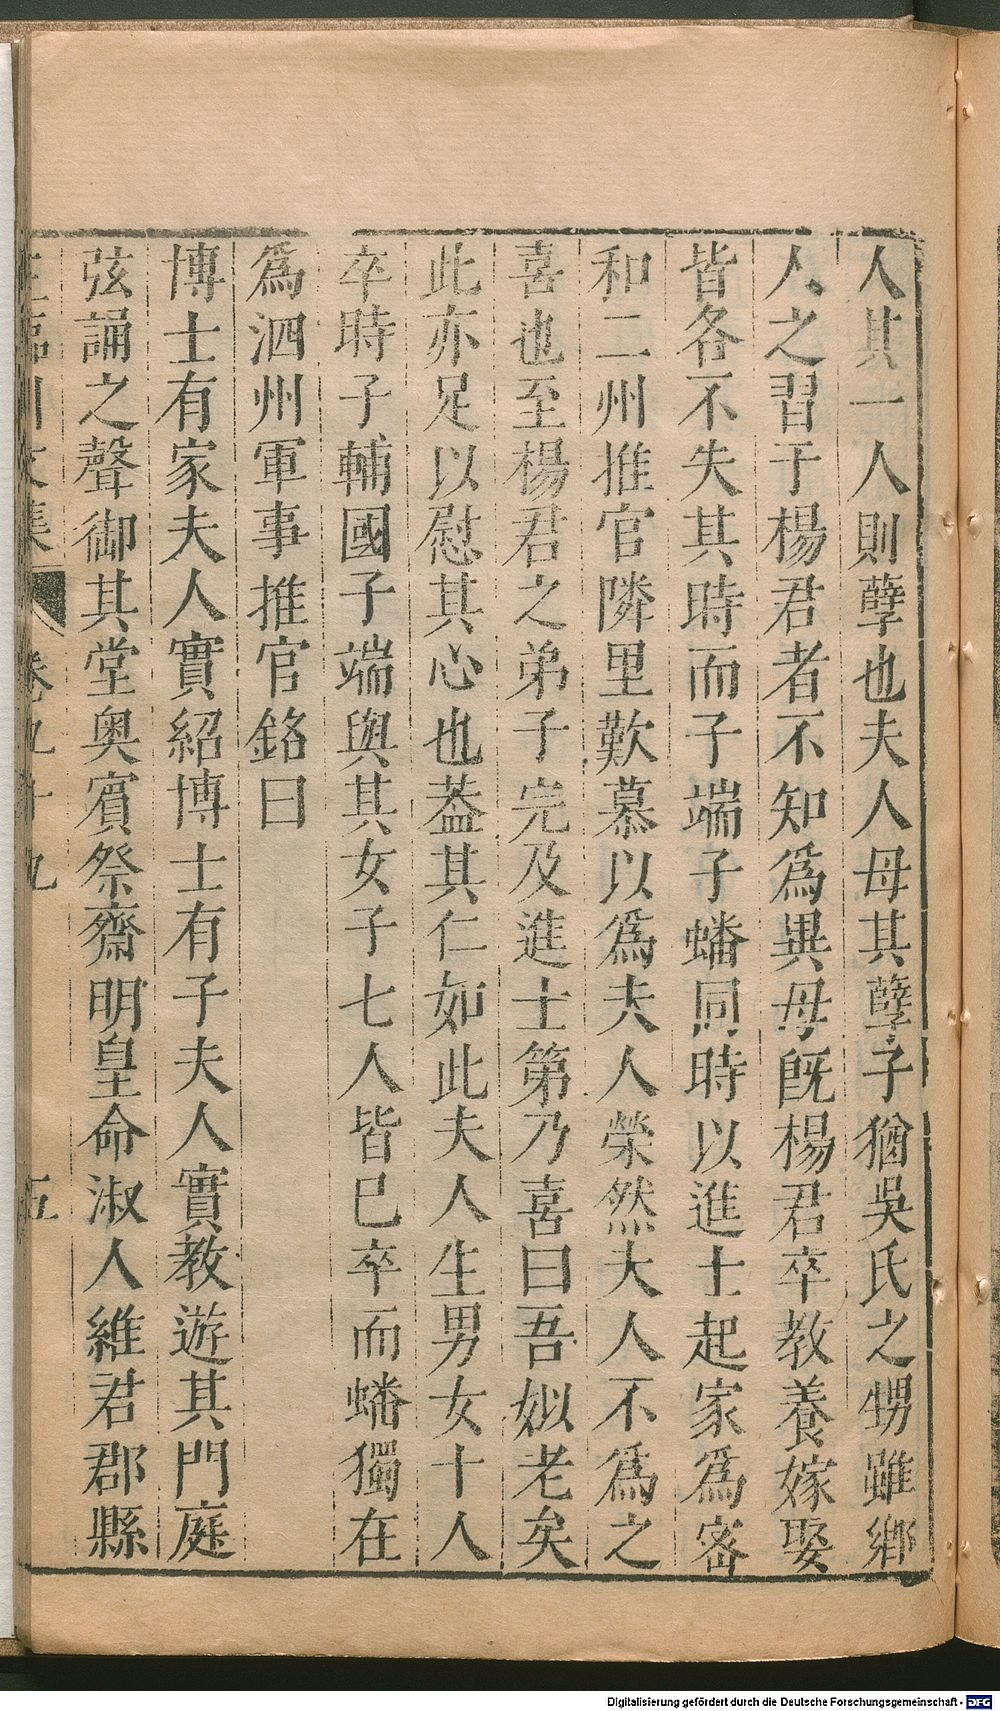 人其一人則孽也夫人母其孽子猶吳氏之甥雖鄉
人之習于楊君者不知爲異母旣楊君卒教養嫁娶
皆各不失其時而子端子蟠同時以進士起家爲密
和二州推官隣里歎慕以爲夫人榮然夫人不爲之
喜也至楊君之弟子完及進士第乃喜曰吾姒老矣
此亦足以慰其心也葢其仁如此夫人生男女十人
卒時子輔國子端與其女子七人皆已卒而蟠獨在
爲泗州軍事推官銘曰
博士有家夫人實紹博士有子夫人實教遊其門庭
弦誦之聲御其堂奧賓祭齋明皇命淑人維君郡縣
王臨川文集 卷九十九 五
Digitalisierung gefördert durch die Deutsche Forschungsgemeinschaft - DFG